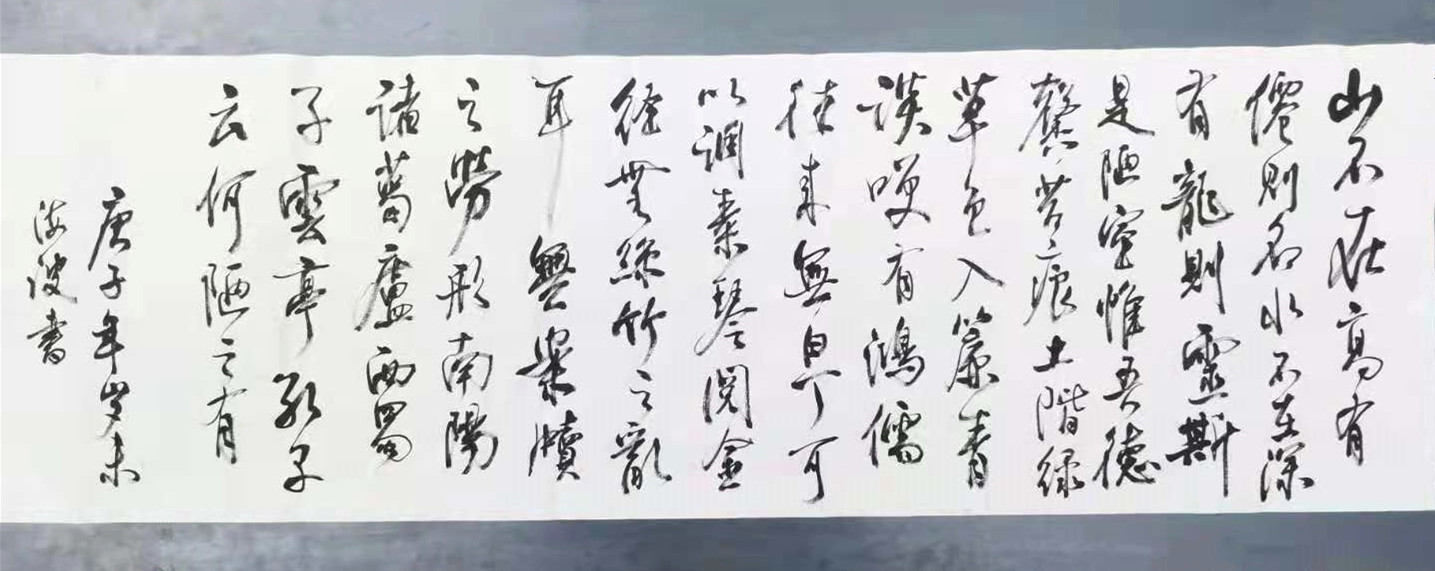 山不在高有
僊則名水不在深
有龍則靈斯
是陋室惟吾德
馨苔痕上階緑
草色入簾青
談嘆有鴻儒
往来無白丁可
以調素琴閲金
經無絲竹之亂
耳無案牘
之勞形南陽
諸葛廬西蜀
子雲亭孔子
云何陋之有
庚子年岁末
海書